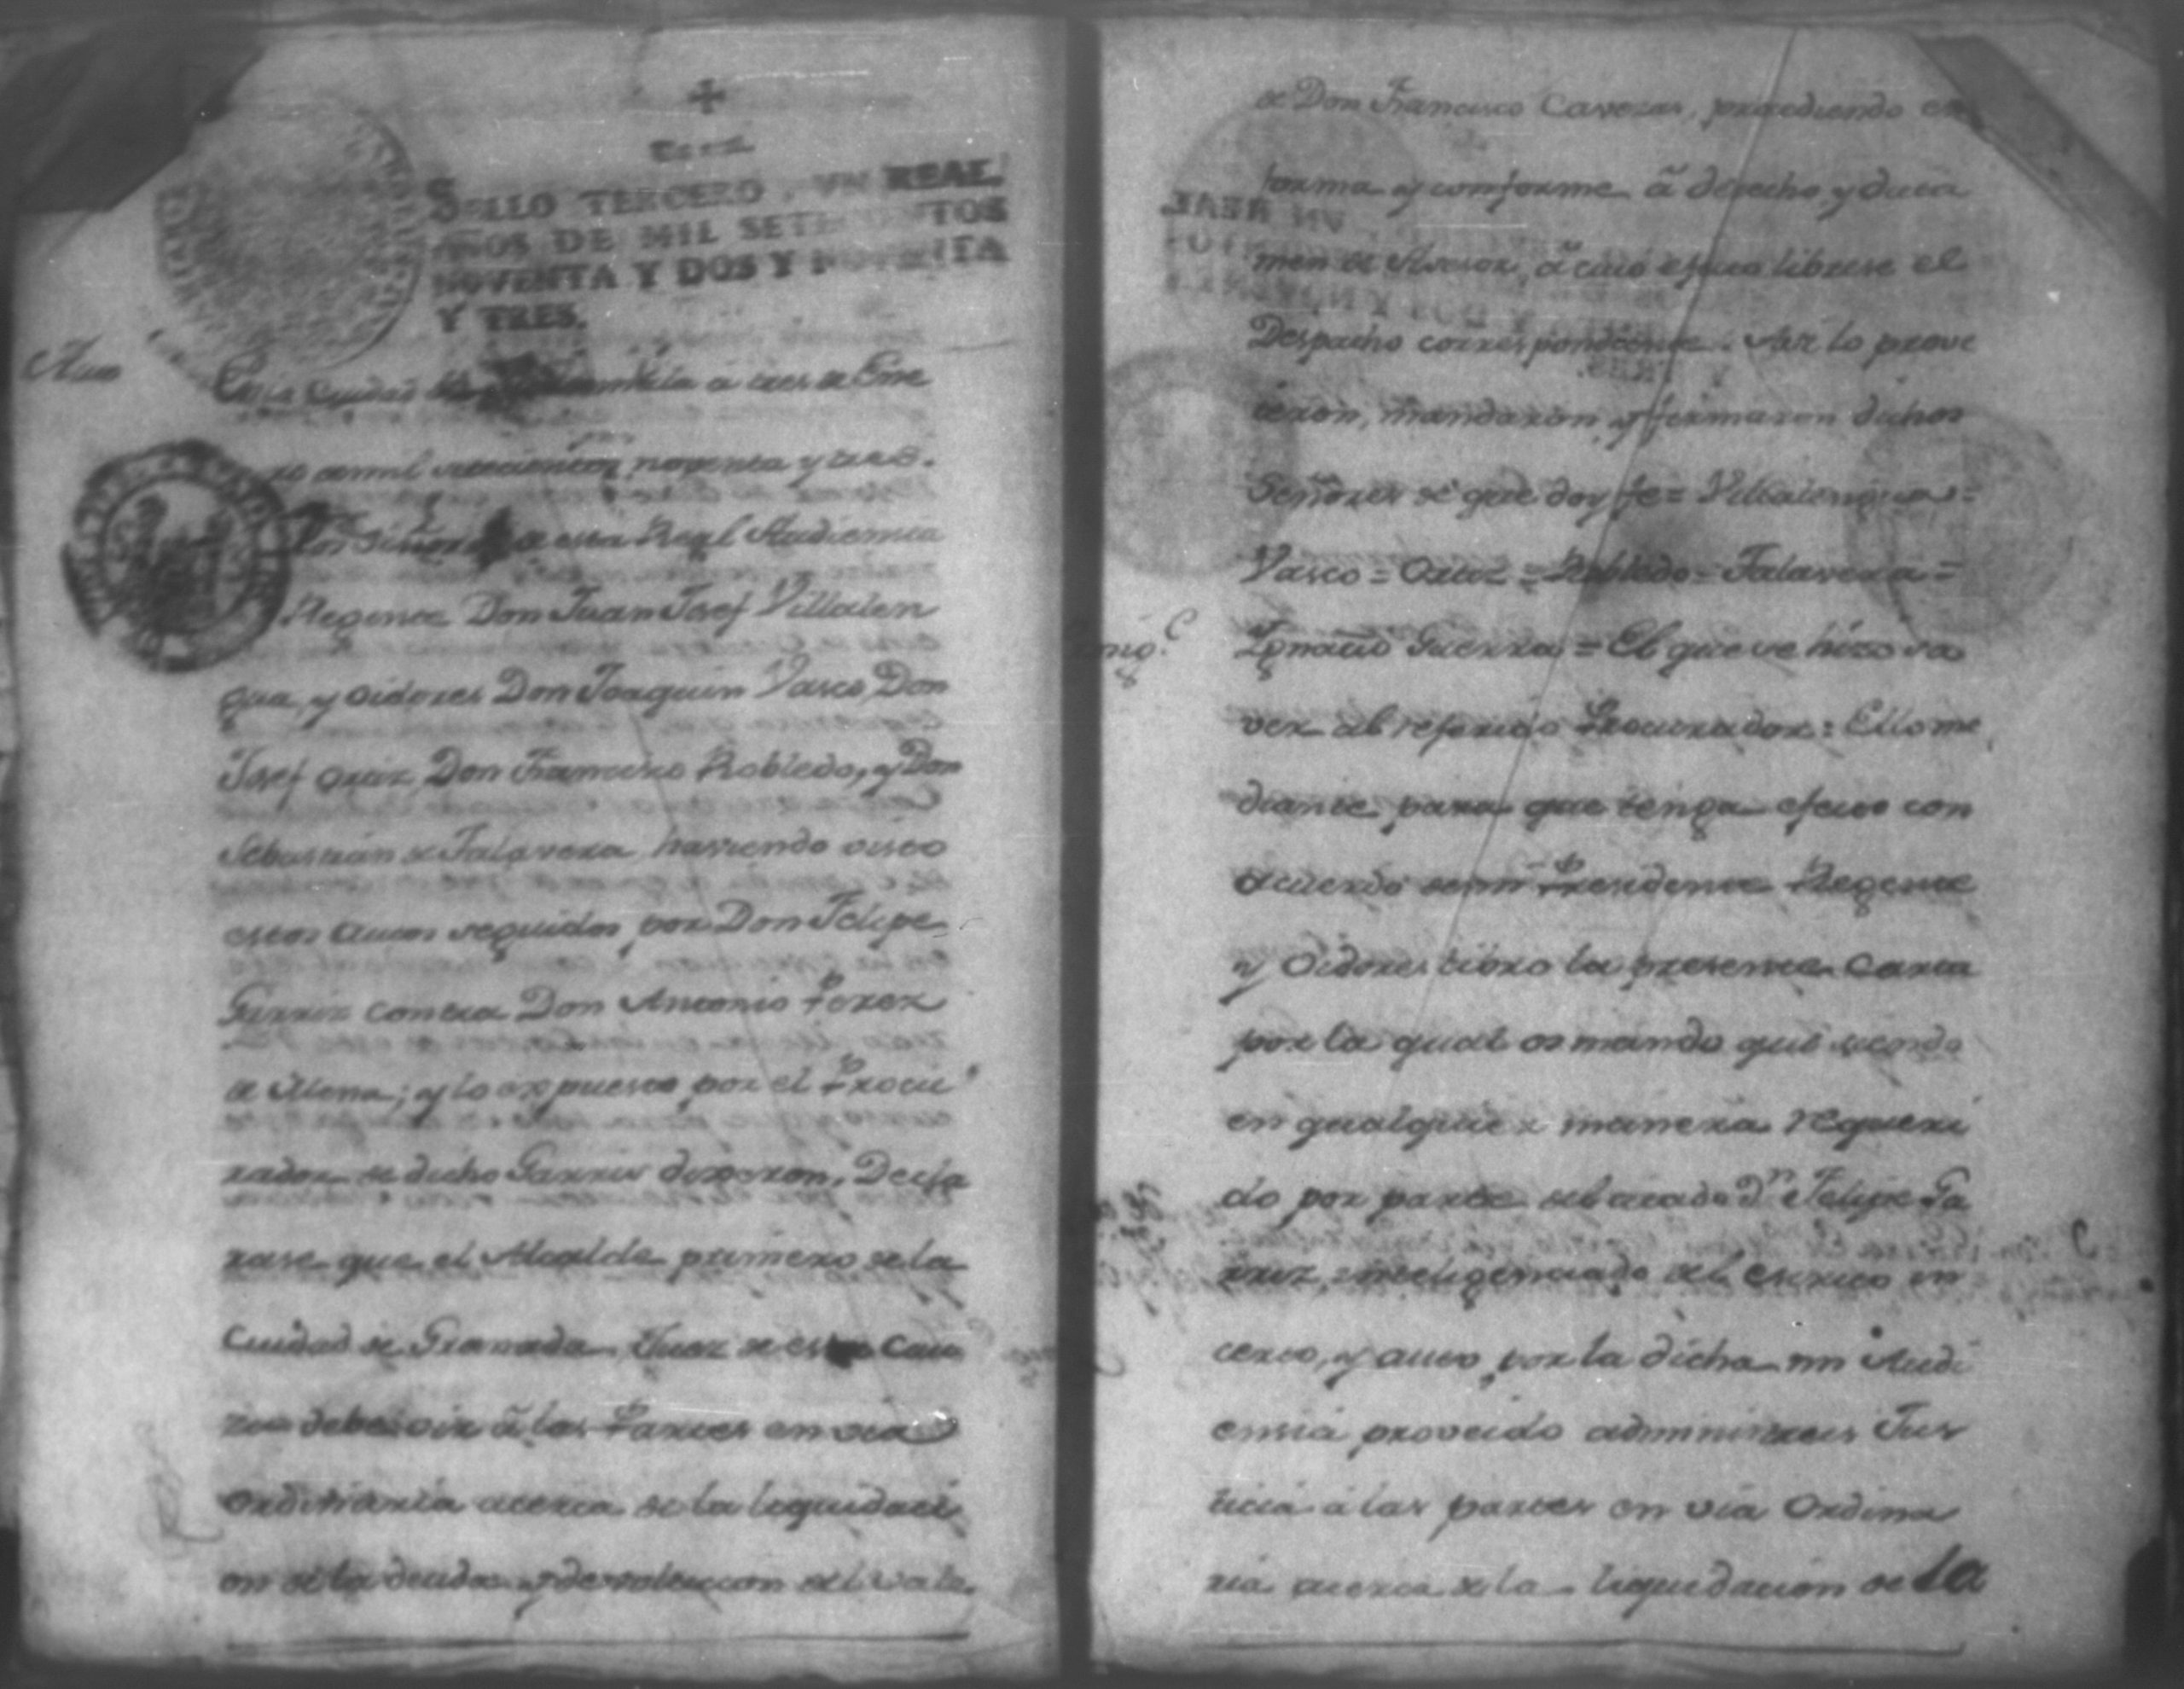 SELLO TERCERO, VN REAL
AÑOS DE MIL SETECIENTOS
NOVENTA Y DOS Y NOVENTA
Y TRES.
Auto
En la Ciudad de Guatemala a tres de Ene
ro de mil setecientos noventa y tres.
Los Señores de esta Real Audiencia
Regente Don Juan Josef Villalen
gua, y Oidores Don Joaquin Vasco, Don
Josef Ortiz, Don Francisco Robledo, y Don
Sebastian de Talavera, haviendo visto
estos autos seguidos por Don Felipe
Garriz contra Don Antonio Perez
de Mena; y lo expuesto por el Procu
rador de dicho Garriz dixeron, Decla
rase que el Alcalde primero de la
Ciudad de Granada Juez de esta Cau
sa debe oir á las Partes en via
Ordinaria acerca de la liquidaci
on de la deuda y devolucion del vale
de Don Francisco Cavezas, procediendo en
forma y conforme á derecho y dicta
men de Asesor, á cuio efecto librese el
Despacho correspondiente. Asi lo prove
ieron, mandaron, y firmaron dichos
Señores de que doy fe = Villalengua =
Vasco = Ortiz = Robledo = Talavera =
Ignacio Guerra = El que se hizo sa
ver al referido Procurador: En lo me
diante para que tenga efecto con
acuerdo de mi Presidente Regente
y Oidores libro la presente Carta
por la qual os mando que siendo
en qualquier manera requeri
do por parte del citado Dn Felipe Ga
rriz, inteligenciado del escrito in
certo, y auto por la dicha mi Audi
encia proveido administreis Jus
ticia á las partes en via Ordina
ria acerca de la liquidacion de la